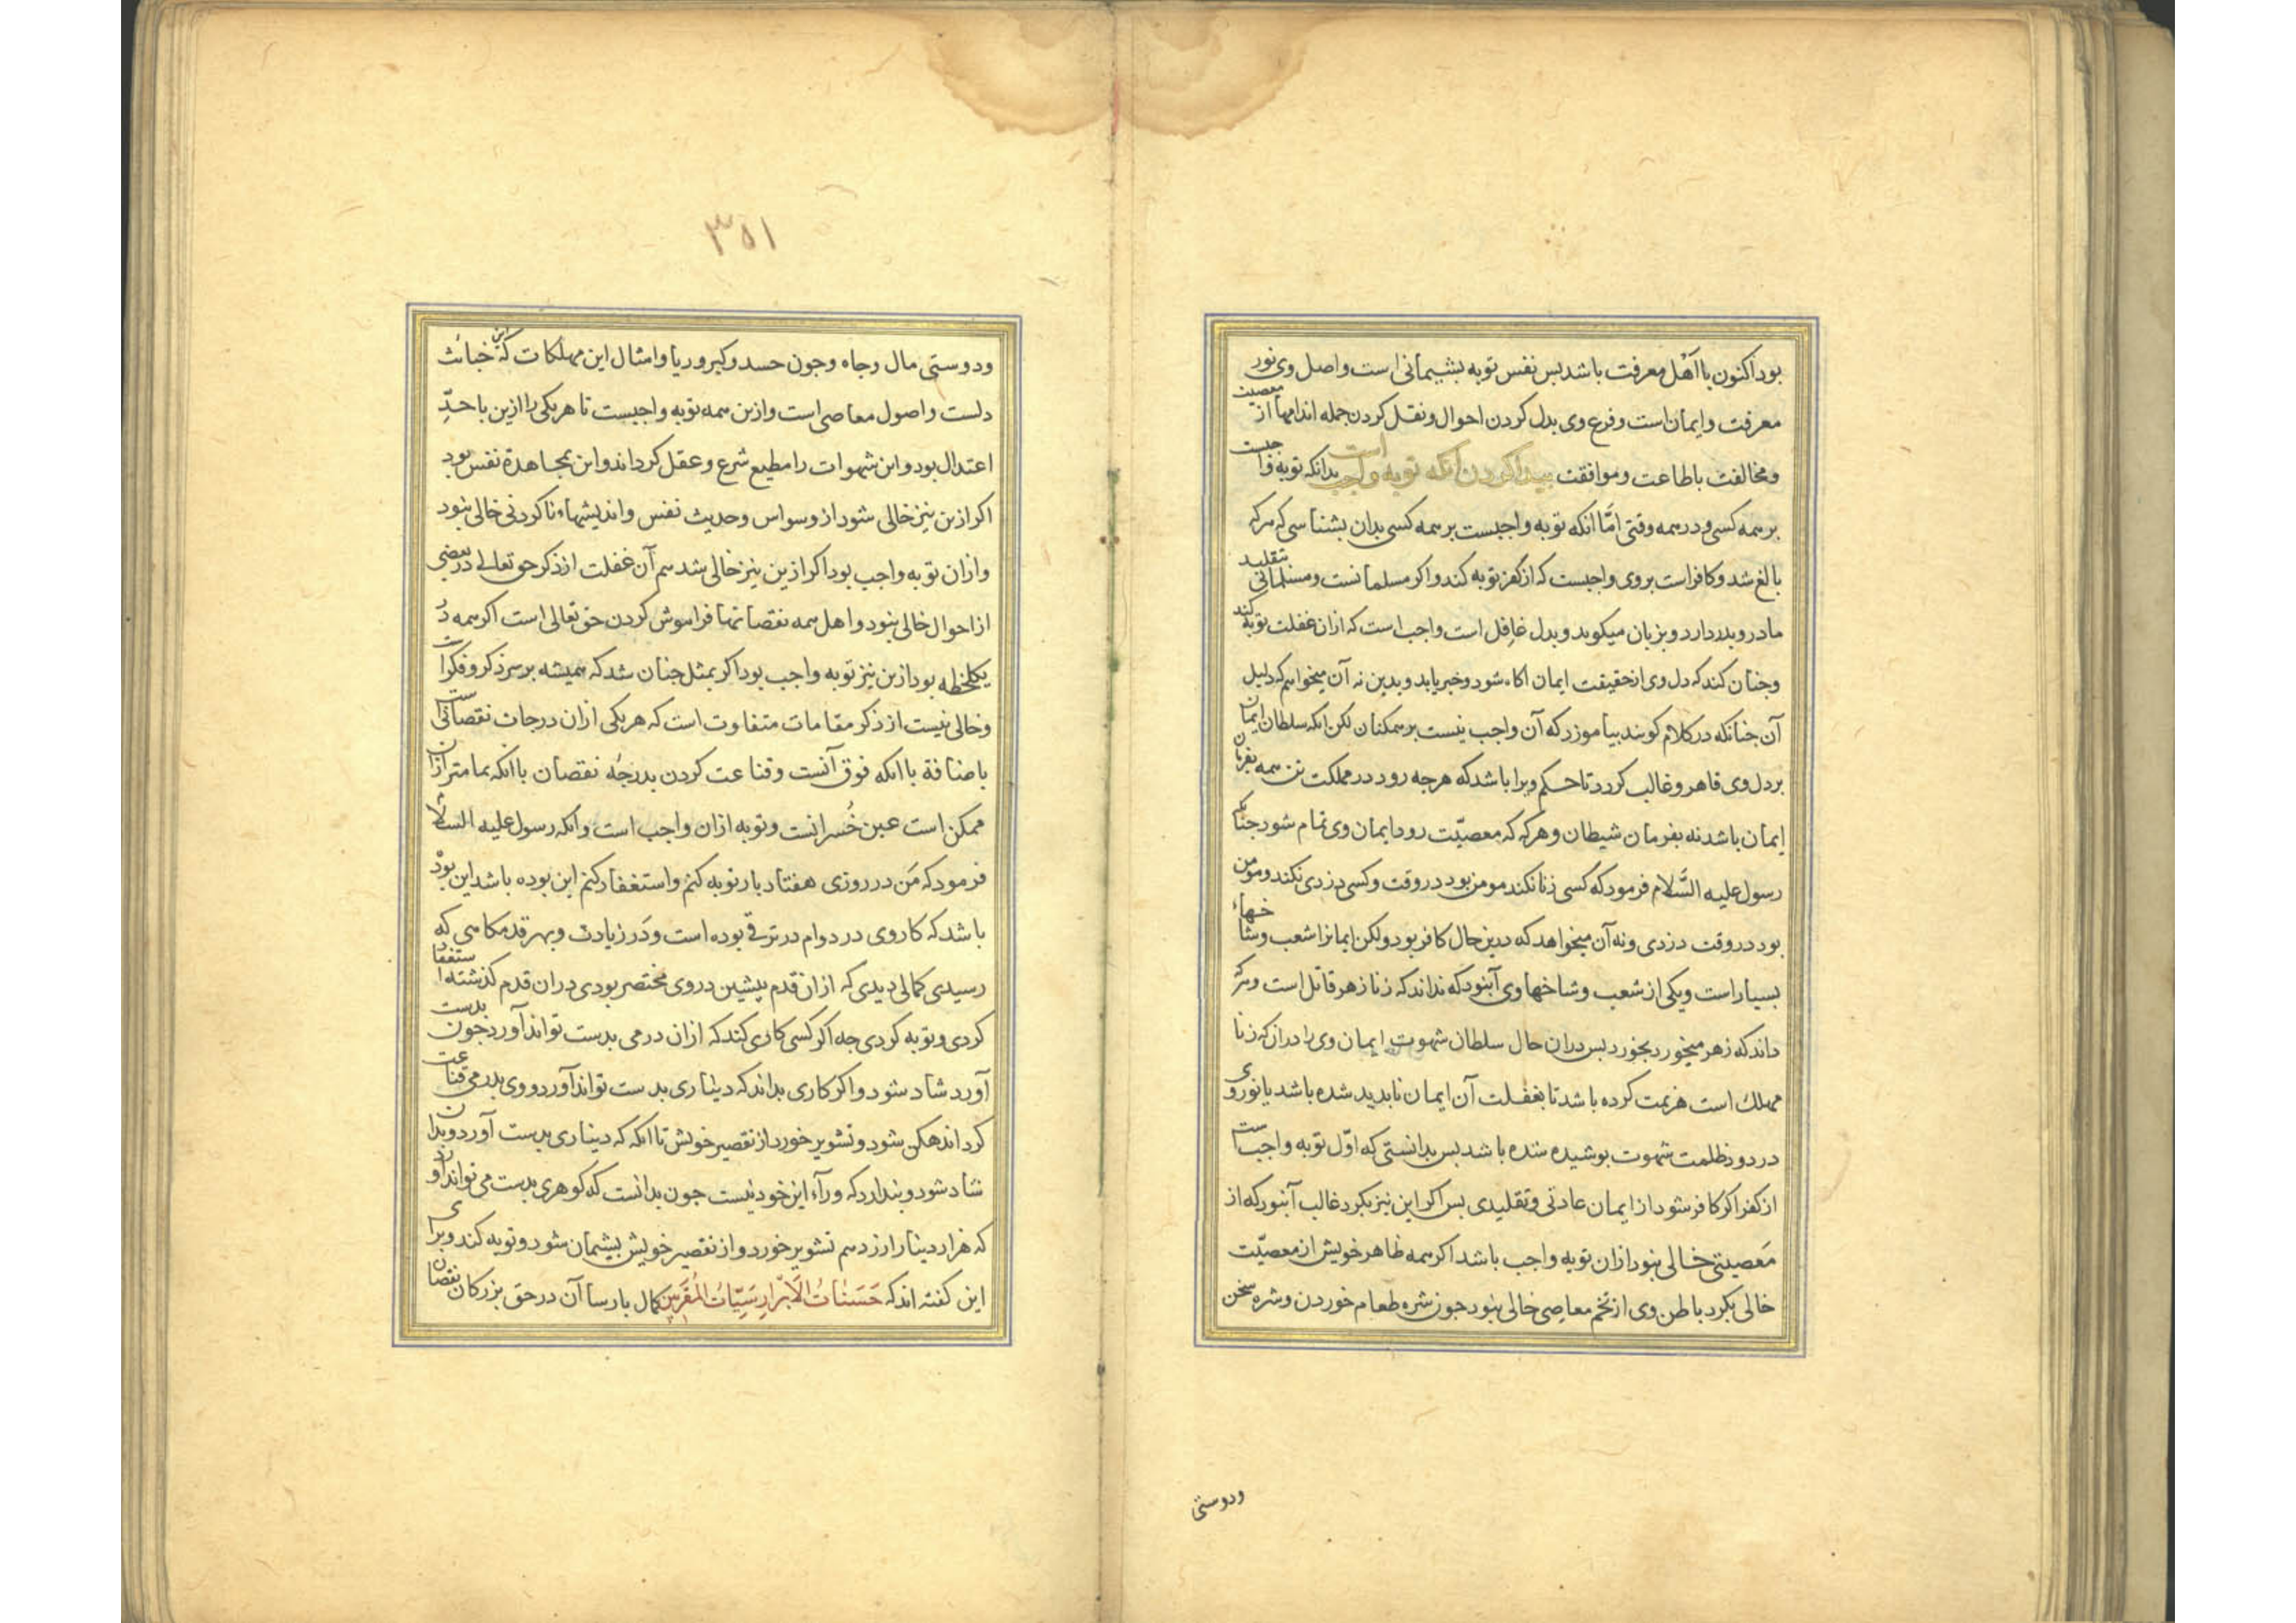 بود اکنون با اهل معرفت باشد بس نفس توبه بشیمانی است واصل وی نور
معرفت وایمان است وفرع وی بدل کردن احوال ونقل کردن جمله اندامها از معصیت
ومخالفت باطاعت وموافقت بیدا کردن آنکه توبه واجب است بدانکه توبه واجبست
برهمه کسی ودرهمه وقتی امّا انکه توبه واجبست برهمه کسی بدان بشناسی که هرکه
بالغ شد وکافراست بروی واجبست که از کفر توبه کند واکر مسلمانست ومسلمانی بتقلید
مادر وبدر دارد وبزبان میکوید وبدل غافل است واجب است که ازان غفلت توبه کند
وجنان کند که دل وی از حقیقت ایمان اکاه شود وخبر یابد وبدین نه آن میخواهم که دلیل
آن جنانکه در کلام کویند بیاموزد که آن واجب نیست برهمکنان لکن انکه سلطان ایمان
بردل وی قاهر وغالب کردد تا حکم ویرا باشد که هرجه رود در مملکت تن همه بفرمان
ایمان باشد نه بفرمان شیطان وهرکه که معصیّت رود ایمان وی تمام شود جنانکه
رسول علیه السَّلام فرمود که کسی زنا نکند مومن بود در وقت وکسی دزدی نکند ومومن
بود در وقت دزدی ونه آن میخواهد که درین حال کافر بود ولکن ایمانرا شعب وشاخهاء
بسیار است ویکی از شعب وشاخهاوی آنبود که نداند که زنا زهر قاتل است وهرکه
داند که زهر میخورد بخورد بس دران حال سلطان شهوت ایمان وی را دران که زنا
مهلک است هزیمت کرده باشد تا بغفلت آن ایمان نابدید شده باشد یا نور وی
در دود ظلمت شهوت بوشیده شده باشد بس بدانستی که اوّل توبه واجب است
از کفر اکر کافر شود از ایمان عادتی وتقلیدی بس اکر این نیز بکرد غالب آنبود که از
مَعصیتی خالی نبود ازان توبه واجب باشد اکر همه ظاهر خویش از معصیّت
خالی بکرد باطن وی از تخم معاصی خالی نبود جون شره طعام خوردن وشره سخن
ودوستی
۳۵۱
ودوستی مال وجاه وجون حسد وکبر وریا وامثال این مهلکات که این خبائث
دلست واصول معاصی است وازین همه توبه واجبست تا هریکی را ازین باحدِّ
اعتدال بود واین شهوات را مطیع شرع وعقل کرداند واین بمجاهدهٔ نفس بود
اکر ازین نیز خالی شود از وسواس وحدیث نفس واندیشهاء ناکردنی خالی نبود
وازان توبه واجب بود اکر ازین نیز خالی شد هم آن غفلت از ذکر حق تعالی در بعضی
از احوال خالی نبود واهل همه نقصانها فراموش کردن حق تعالی است اکر همه در
یکلحظه بود ازین نیز توبه واجب بود اکر بمثل جنان شد که همیشه بر سر ذکر وفکرات
وخالی نیست از ذکر مقامات متفاوت است که هریکی ازان درجات نقصانی است
باضافة باانکه فوق آنست وقناعت کردن بدرجهٔ نقصان باانکه تمامتر ازان
ممکن است عین خُسرانست وتوبه ازان واجب است وانکه رسول علیه السلام
فرمود که مَن در روزی هفتاد بار توبه کنم واستغفار کنم این بوده باشد این بود
باشد که کار وی در دوام در ترقّی بوده است ودَر زیادت وبهر قدمکاهی که
رسیدی کمالی دیدی که ازان قدم بیشین در وی مختصر بودی دران قدم کذشته استغفار
کردی وتوبه کردی جه اکر کسی کاری کند که ازان درمی بدست تواند آورد جون بدست
آورد شاد شود واکر کاری بداند که دیناری بدست تواند آورد ووی بدرمی قناعت
کرد اندهکن شود وتشویر خورد از تقصیر خویش تا انکه که دیناری بدست آورد وبدان
شاد شود وبندارد که ورآء این خود نیست جون بدانست که کوهری بدست می تواند آورد
که هزار دینار ارزد هم تشویر خورد واز تقصیر خویش بیشمان شود وتوبه کند وبرای
این کفته اند که حَسَناتُ الاَبْرارِ سَیِّئاتُ المُقَرَّبین کمال بارساآن در حق بزرکان نقصان